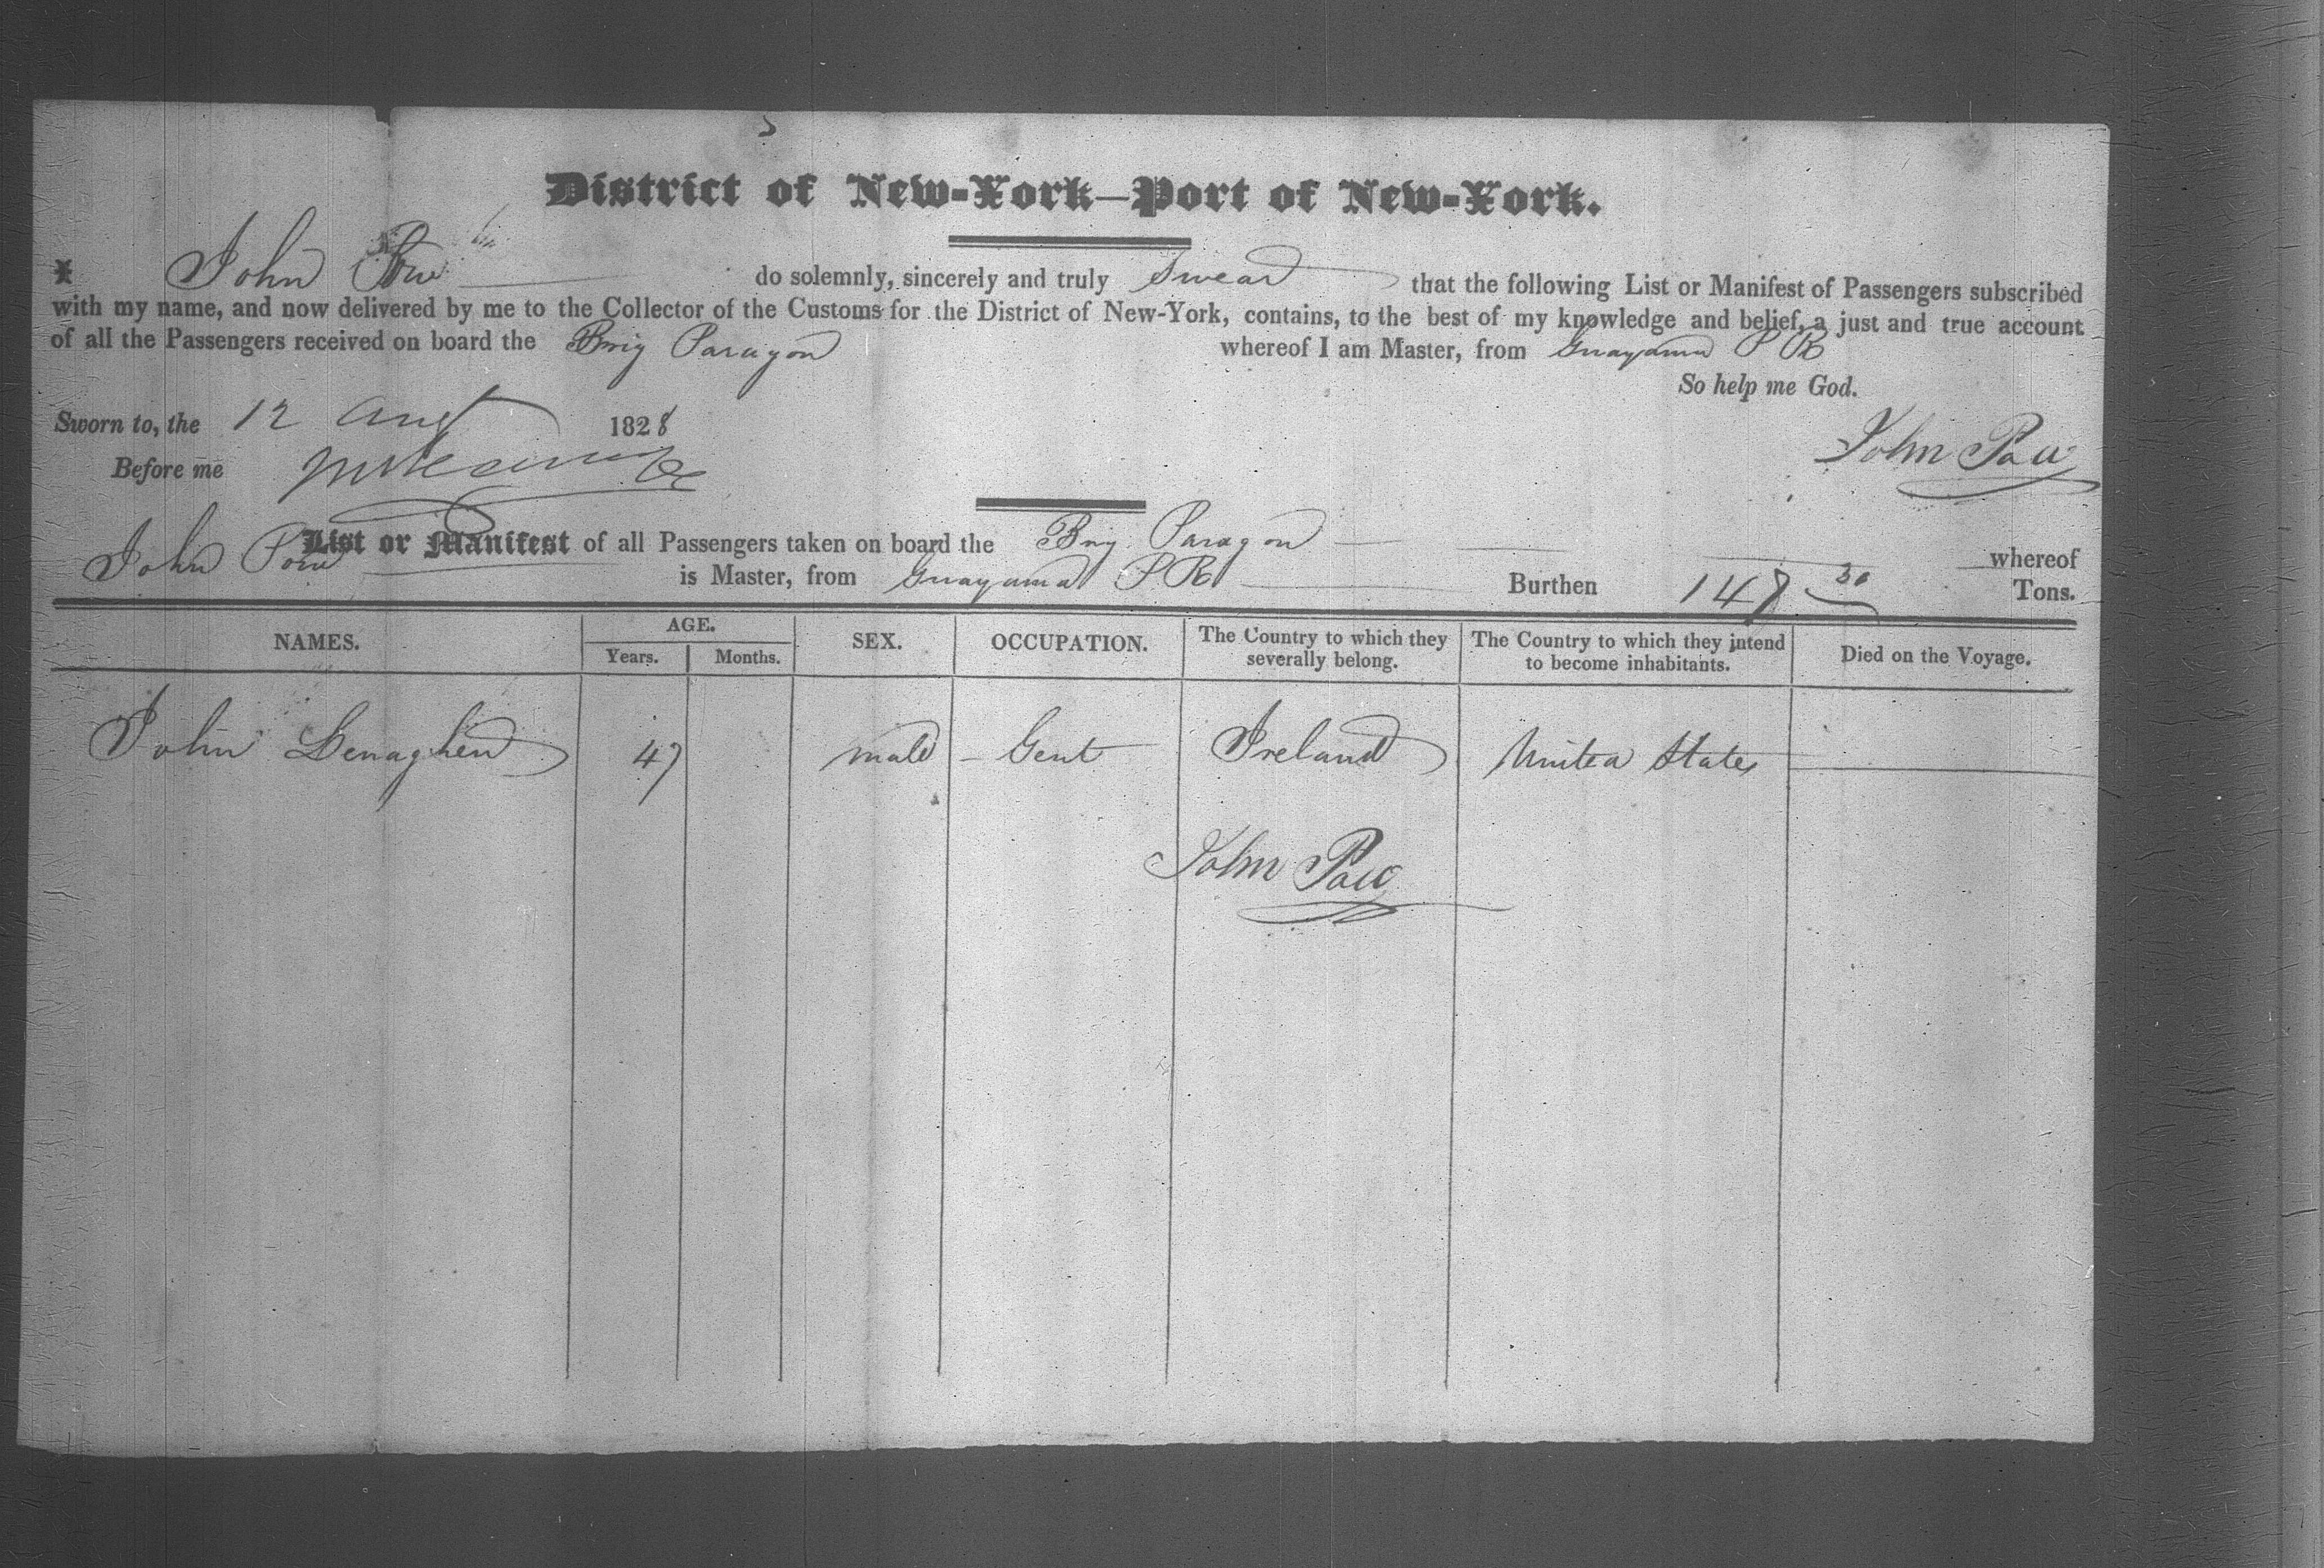 District of New-York—Port of New-York.
I John Pow do solemnly, sincerely and truly Swear that the following List or Manifest of Passengers subscribed
with my name, and now delivered by me to the Collector of the Customs for the District of New-York, contains, to the best of my knowledge and belief, a just and true account
of all the Passengers received on board the Brig Paragon whereof I am Master, from Guayama P R
So help me God.
Sworn to, the 12 Aug 1828
John Pow
Before me
List or Manifest of all Passengers taken on board the Brig Paragon whereof
John Pow is Master, from Guayama P R Burthen 148 30 Tons.
NAMES. AGE. Years. Months. SEX. OCCUPATION. The Country to which they severally belong. The Country to which they intend to become inhabitants. Died on the Voyage.
John Lenaghen 47 male - Gent Ireland United States
John Pow